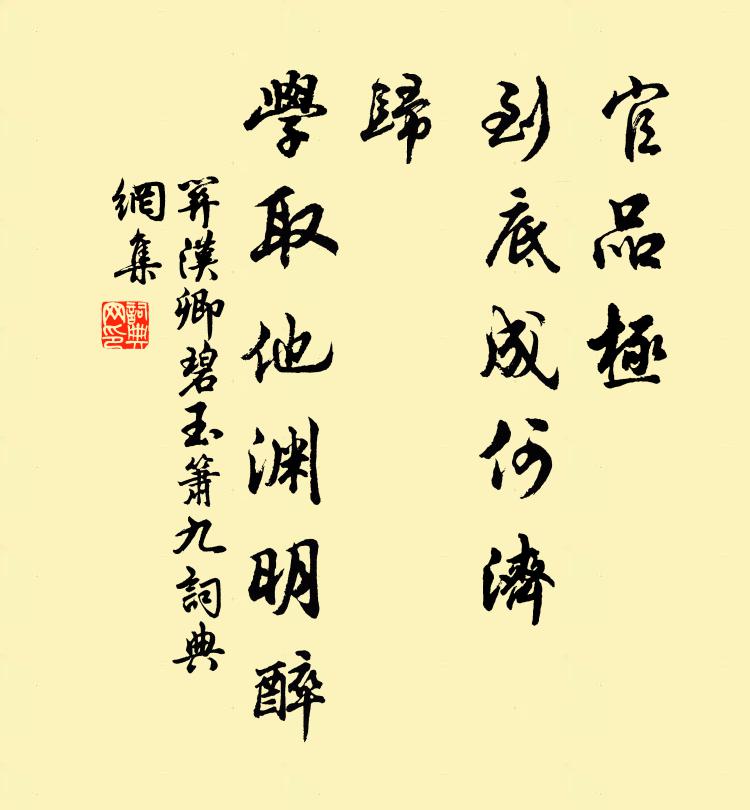 官品極
到底成何濟
歸
學取他淵明醉
關漢卿碧玉簫九詞典
網集
詞典
网印